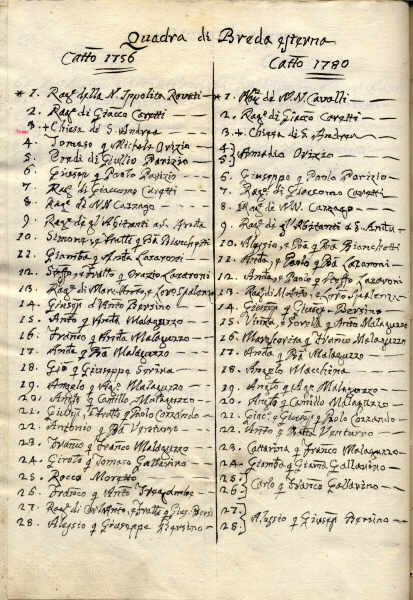 Quadra di Breda esterna
Catto 1756
* 1. Rag.e della N. Ippolita Rovati
2. Rag.e di Giacco Caretti
3. + Chiesa di S. Andrea
4. Tomaso q Michele Orizio
5. Eredi di Giulio Parizio
6. Giusepe q Paolo Parizio
7. Rag.e di Giaccomo Caretti
8. Rag.e di NN Cazzago
9. Rag.e de gl'Abitanti a S.
10. Simone, e fratt.o q Bta Bianchetti
11. Giamba q Andr.a Lazaroni
12. Steffo, e fratto q Orazio Lazaroni
13. Rag.e di Marc'Anto, e Loro Spalenza
14. Giusepe d'Anto Bersino
15. Anto q Andr.a Malaguzzo
16. Franco q Andr.a Malaguzzo
17. Andr.a q Bta Malaguzzo
18. Gio q Giuseppe
19. Angelo q Malaguzzo
20. q Camillo Malaguzzo
21. Giuseppe, e fratto q Paolo Cozzando
22. Antonio q Bta Venturo
23. Franco q Franco Malaguzzo
24. q Tomaso Gallavino
25. Rocco Moretto
26. Franco q Anto
27. Rag.e di e fratto q Gius. Bersi
28. Alessio q Giuseppe Bersino
Catto 1780
* 1. Rag.e de N.N. Cavalli
2. Rag.e di Giacco Caretti
3. + Chiesa di S. Andrea
4.
5. Amadio Orizio
6. Giuseppe q Paolo Parizio
7. Rag.e di Giaccomo Caretti
8. Rag.e de NN. Cazzago
9. Rag.e de gl'Abitanti a S.
10. Alessio, e Bta q Bta Bianchetti
11. Andr.a, e Paolo q Bta Lazaroni
12. Andr.a, e Paolo q Steffo Lazaroni
13. Rag.e di M. Anto, e Loro Spalenza
14. Giusepe q Giusepe Bersino
15. e Sorella q Anto Malaguzzo
16. Margherita q Franco Malaguzzo
17. Andr.a q Bta Malaguzzo
18. Angelo Macchina
19. q Malaguzzo
20. q Camillo Malaguzzo
21. Giac. e Giusepe q Paolo Cozzando
22. Anto q Batta Venturo
23. Cattarina q Franco Malaguzzo
24. Giamba q Gallavino
25.
26. Carlo q Franco Gallavino
27.
28. Alessio q Giusepe Bersino